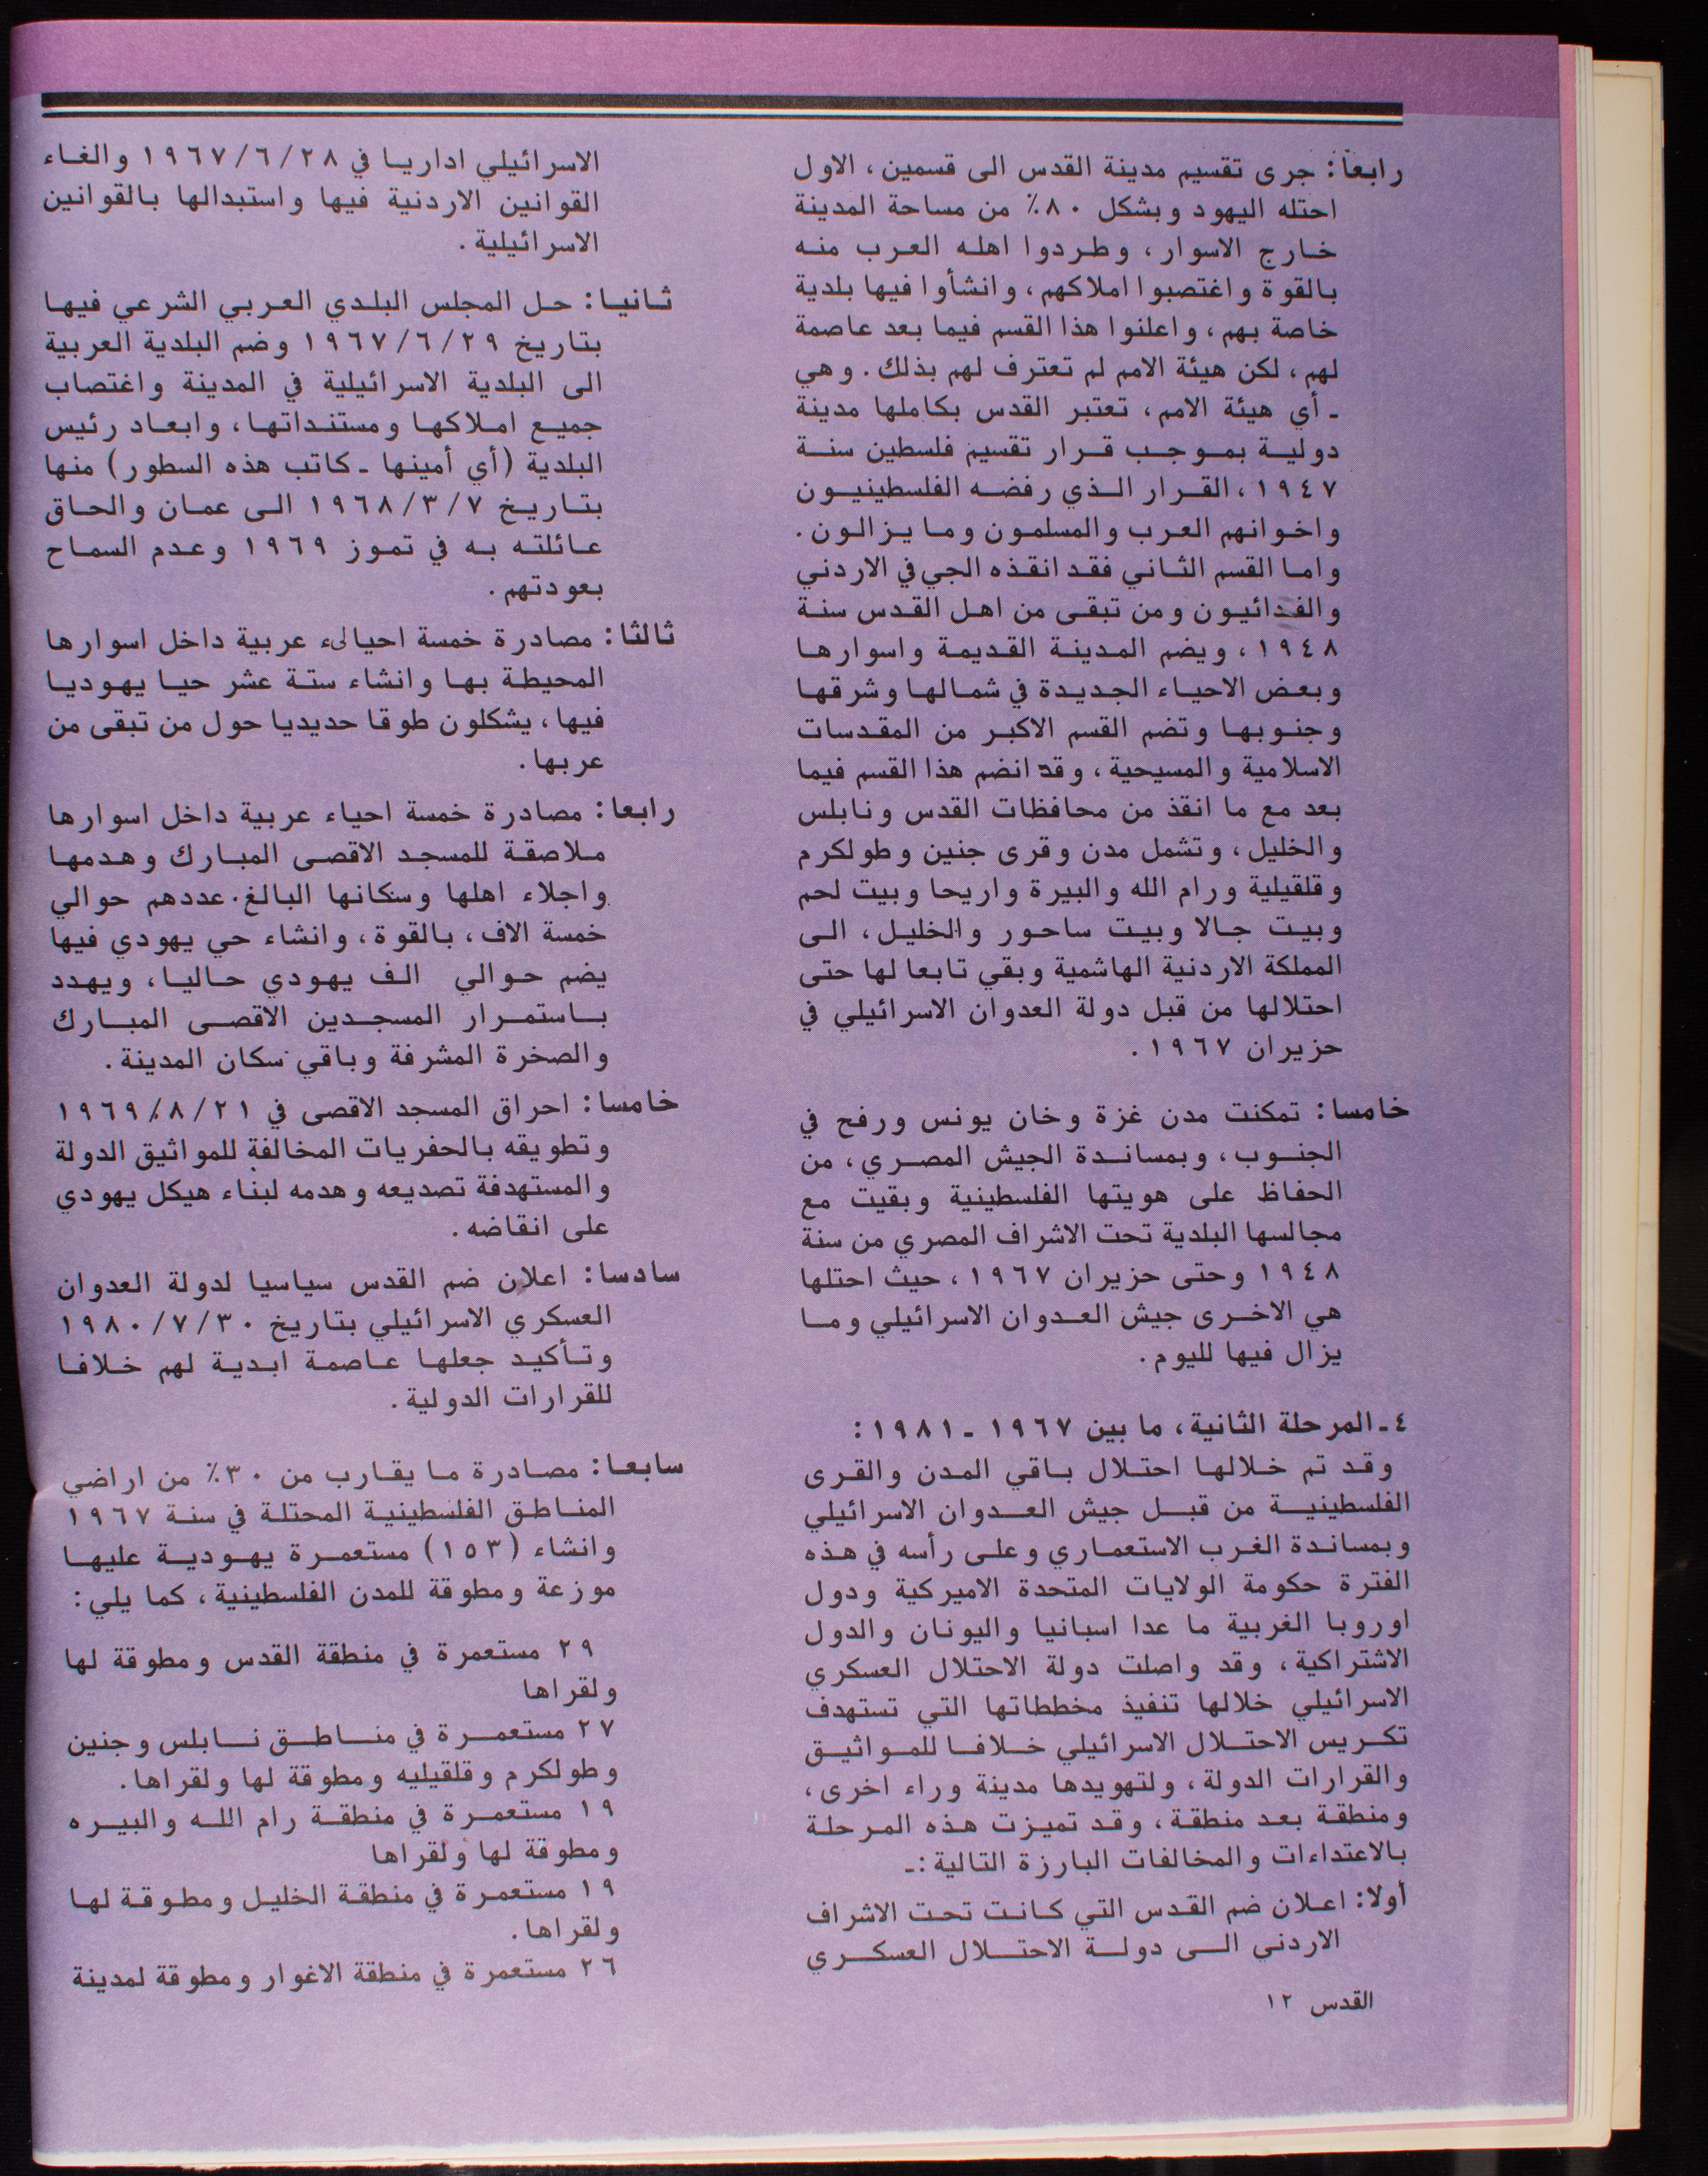 رابعاً: جرى تقسيم مدينة القدس الى قسمين، الاول
احتله اليهود وبشكل ٨٠٪ من مساحة المدينة
خارج الاسوار، وطردوا اهله العرب منه
بالقوة واغتصبوا املاكهم، وانشأوا فيها بلدية
خاصة بهم، واعلنوا هذا القسم فيما بعد عاصمة
لهم، لكن هيئة الامم لم تعترف لهم بذلك. وهي
ـ أي هيئة الامم، تعتبر القدس بكاملها مدينة
دولية بموجب قرار تقسيم فلسطين سنة
١٩٤٧، القرار الذي رفضه الفلسطينيون
واخوانهم العرب والمسلمون وما يزالون.
واما القسم الثاني فقد انقذه الجي في الاردني
والفدائيون ومن تبقى من اهل القدس سنة
١٩٤٨، ويضم المدينة القديمة واسوارها
وبعض الاحياء الجديدة في شمالها وشرقها
وجنوبها وتضم القسم الاكبر من المقدسات
الاسلامية والمسيحية، وقد انضم هذا القسم فيما
بعد مع ما انقذ من محافظات القدس ونابلس
والخليل، وتشمل مدن وقرى جنين وطولكرم
وقلقيلية ورام الله والبيرة واريحا وبيت لحم
وبيت جالا وبيت ساحور والخليل، الى
المملكة الاردنية الهاشمية وبقي تابعا لها حتى
احتلالها من قبل دولة العدوان الاسرائيلي في
حزيران ١٩٦٧.
خامسا: تمكنت مدن غزة وخان يونس ورفح في
الجنوب، وبمساندة الجيش المصري، من
الحفاظ على هويتها الفلسطينية وبقيت مع
مجالسها البلدية تحت الاشراف المصري من سنة
١٩٤٨ وحتى حزيران ١٩٦٧، حيث احتلها
هي الاخرى جيش العدوان الاسرائيلي وما
يزال فيها لليوم.
٤ـ المرحلة الثانية، ما بين ١٩٦٧ ـ ١٩٨١:
وقد تم خلالها احتلال باقي المدن والقرى
الفلسطينية من قبل جيش العدوان الاسرائيلي
وبمساندة الغرب الاستعماري وعلى رأسه في هذه
الفترة حكومة الولايات المتحدة الاميركية ودول
اوروبا الغربية ما عدا اسبانيا واليونان والدول
الاشتراكية، وقد واصلت دولة الاحتلال العسكري
الاسرائيلي خلالها تنفيذ مخططاتها التي تستهدف
تكريس الاحتلال الاسرائيلي خلافا للمواثيق
والقرارات الدولة، ولتهويدها مدينة وراء اخرى،
ومنطقة بعد منطقة، وقد تميزت هذه المرحلة
بالاعتداءات والمخالفات البارزة التالية:ـ
أولا: اعلان ضم القدس التي كانت تحت الاشراف
الاردني الى دولة الاحتلال العسكري
الاسرائيلي اداريا في ٢٨/٦/١٩٦٧ والغاء
القوانين الاردنية فيها واستبدالها بالقوانين
الاسرائيلية.
ثانيا: حل المجلس البلدي العربي الشرعي فيها
بتاريخ ٢٩/٦/١٩٦٧ وضم البلدية العربية
الى البلدية الاسرائيلية في المدينة واغتصاب
جميع املاكها ومستنداتها، وابعاد رئيس
البلدية (أي أمينها ـ كاتب هذه السطور) منها
بتاريخ ٧/٣/١٩٦٨ الى عمان والحاق
عائلته به في تموز ١٩٦٩ وعدم السماح
بعودتهم.
ثالثا: مصادرة خمسة احيالىء عربية داخل اسوارها
المحيطة بها وانشاء ستة عشر حيا يهوديا
فيها، يشكلون طوقا حديديا حول من تبقى من
عربها.
رابعا: مصادرة خمسة احياء عربية داخل اسوارها
ملاصقة للمسجد الاقصى المبارك وهدمها
واجلاء اهلها وسكانها البالغ. عددهم حوالي
خمسة الاف، بالقوة، وانشاء حي يهودي فيها
يضم حوالي الف يهودي حاليا، ويهدد
باستمرار المسجدين الاقصى المبارك
والصخرة المشرفة وباقي سكان المدينة.
خامسا: احراق المسجد الاقصى في ٢١/٨/١٩٦٩
وتطويقه بالحفريات المخالفة للمواثيق الدولة
والمستهدفة تصديعه وهدمه لبناء هيكل يهودي
على انقاضه.
سادسا: اعلان ضم القدس سياسيا لدولة العدوان
العسكري الاسرائيلي بتاريخ ٣٠/٧/١٩٨٠
وتأكيد جعلها عاصمة ابدية لهم خلافا
للقرارات الدولية.
سابعا: مصادرة ما يقارب من ٣٠٪ من اراضي
المناطق الفلسطينية المحتلة في سنة ١٩٦٧
وانشاء (١٥٣) مستعمرة يهودية عليها
موزعة ومطوقة للمدن الفلسطينية، كما يلي:
٢٩ مستعمرة في منطقة القدس ومطوقة لها
ولقراها
٢٧ مستعمرة في مناطق نابلس وجنين
وطولكرم وقلقيليه ومطوقة لها ولقراها.
١٩ مستعمرة في منطقة رام الله والبيره
ومطوقة لها ولقراها
١٩ مستعمرة في منطقة الخليل ومطوقة لها
ولقراها.
٢٦ مستعمرة في منطقة الاغوار ومطوقة لمدينة
القدس ١٢